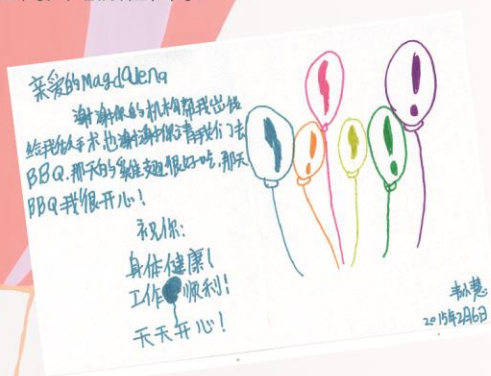 亲爱的Magdalena
谢谢你的机构帮我出钱
给我做手术也谢谢你请我们去
BBQ.那天的鸡翅很好吃,那天
BBQ我很开心!
祝你:
身体健康!
工作顺利!
天天开心!
2015年2月6日